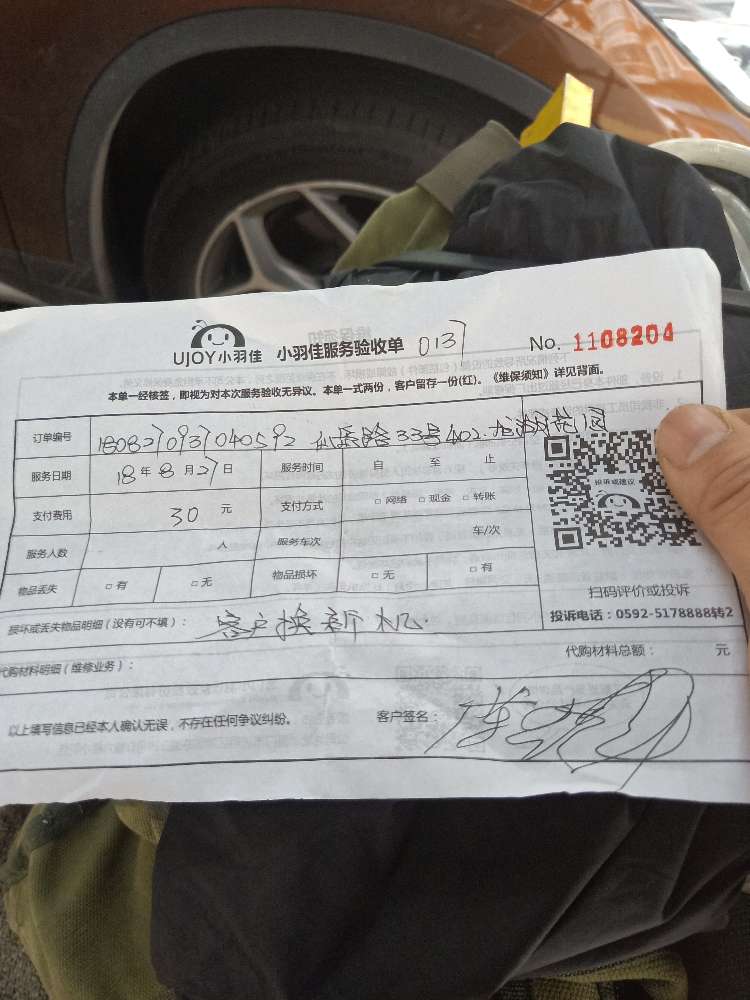 UJOY小羽佳 小羽佳服务验收单 0137 No. 1108204
本单一经核签，即视为对本次服务验收无异议。本单一式两份，客户留存一份(红)。《维保须知》详见背面。
订单编号 1808270937040592 33号402.
服务日期 18年8月27日 服务时间 自 至 止
支付费用 30 元 支付方式 □ 网络 □ 现金 □ 转账
投诉或建议
服务人数 人 服务车次 车/次
物品丢失 □ 有 □ 无 物品损坏 □ 无 □ 有
扫码评价或投诉
投诉电话：0592-5178888转2
损坏或丢失物品明细（没有可不填）： 客户换新机.
代购材料明细（维修业务）： 代购材料总额： 元
以上填写信息已经本人确认无误，不存在任何争议纠纷。 客户签名：